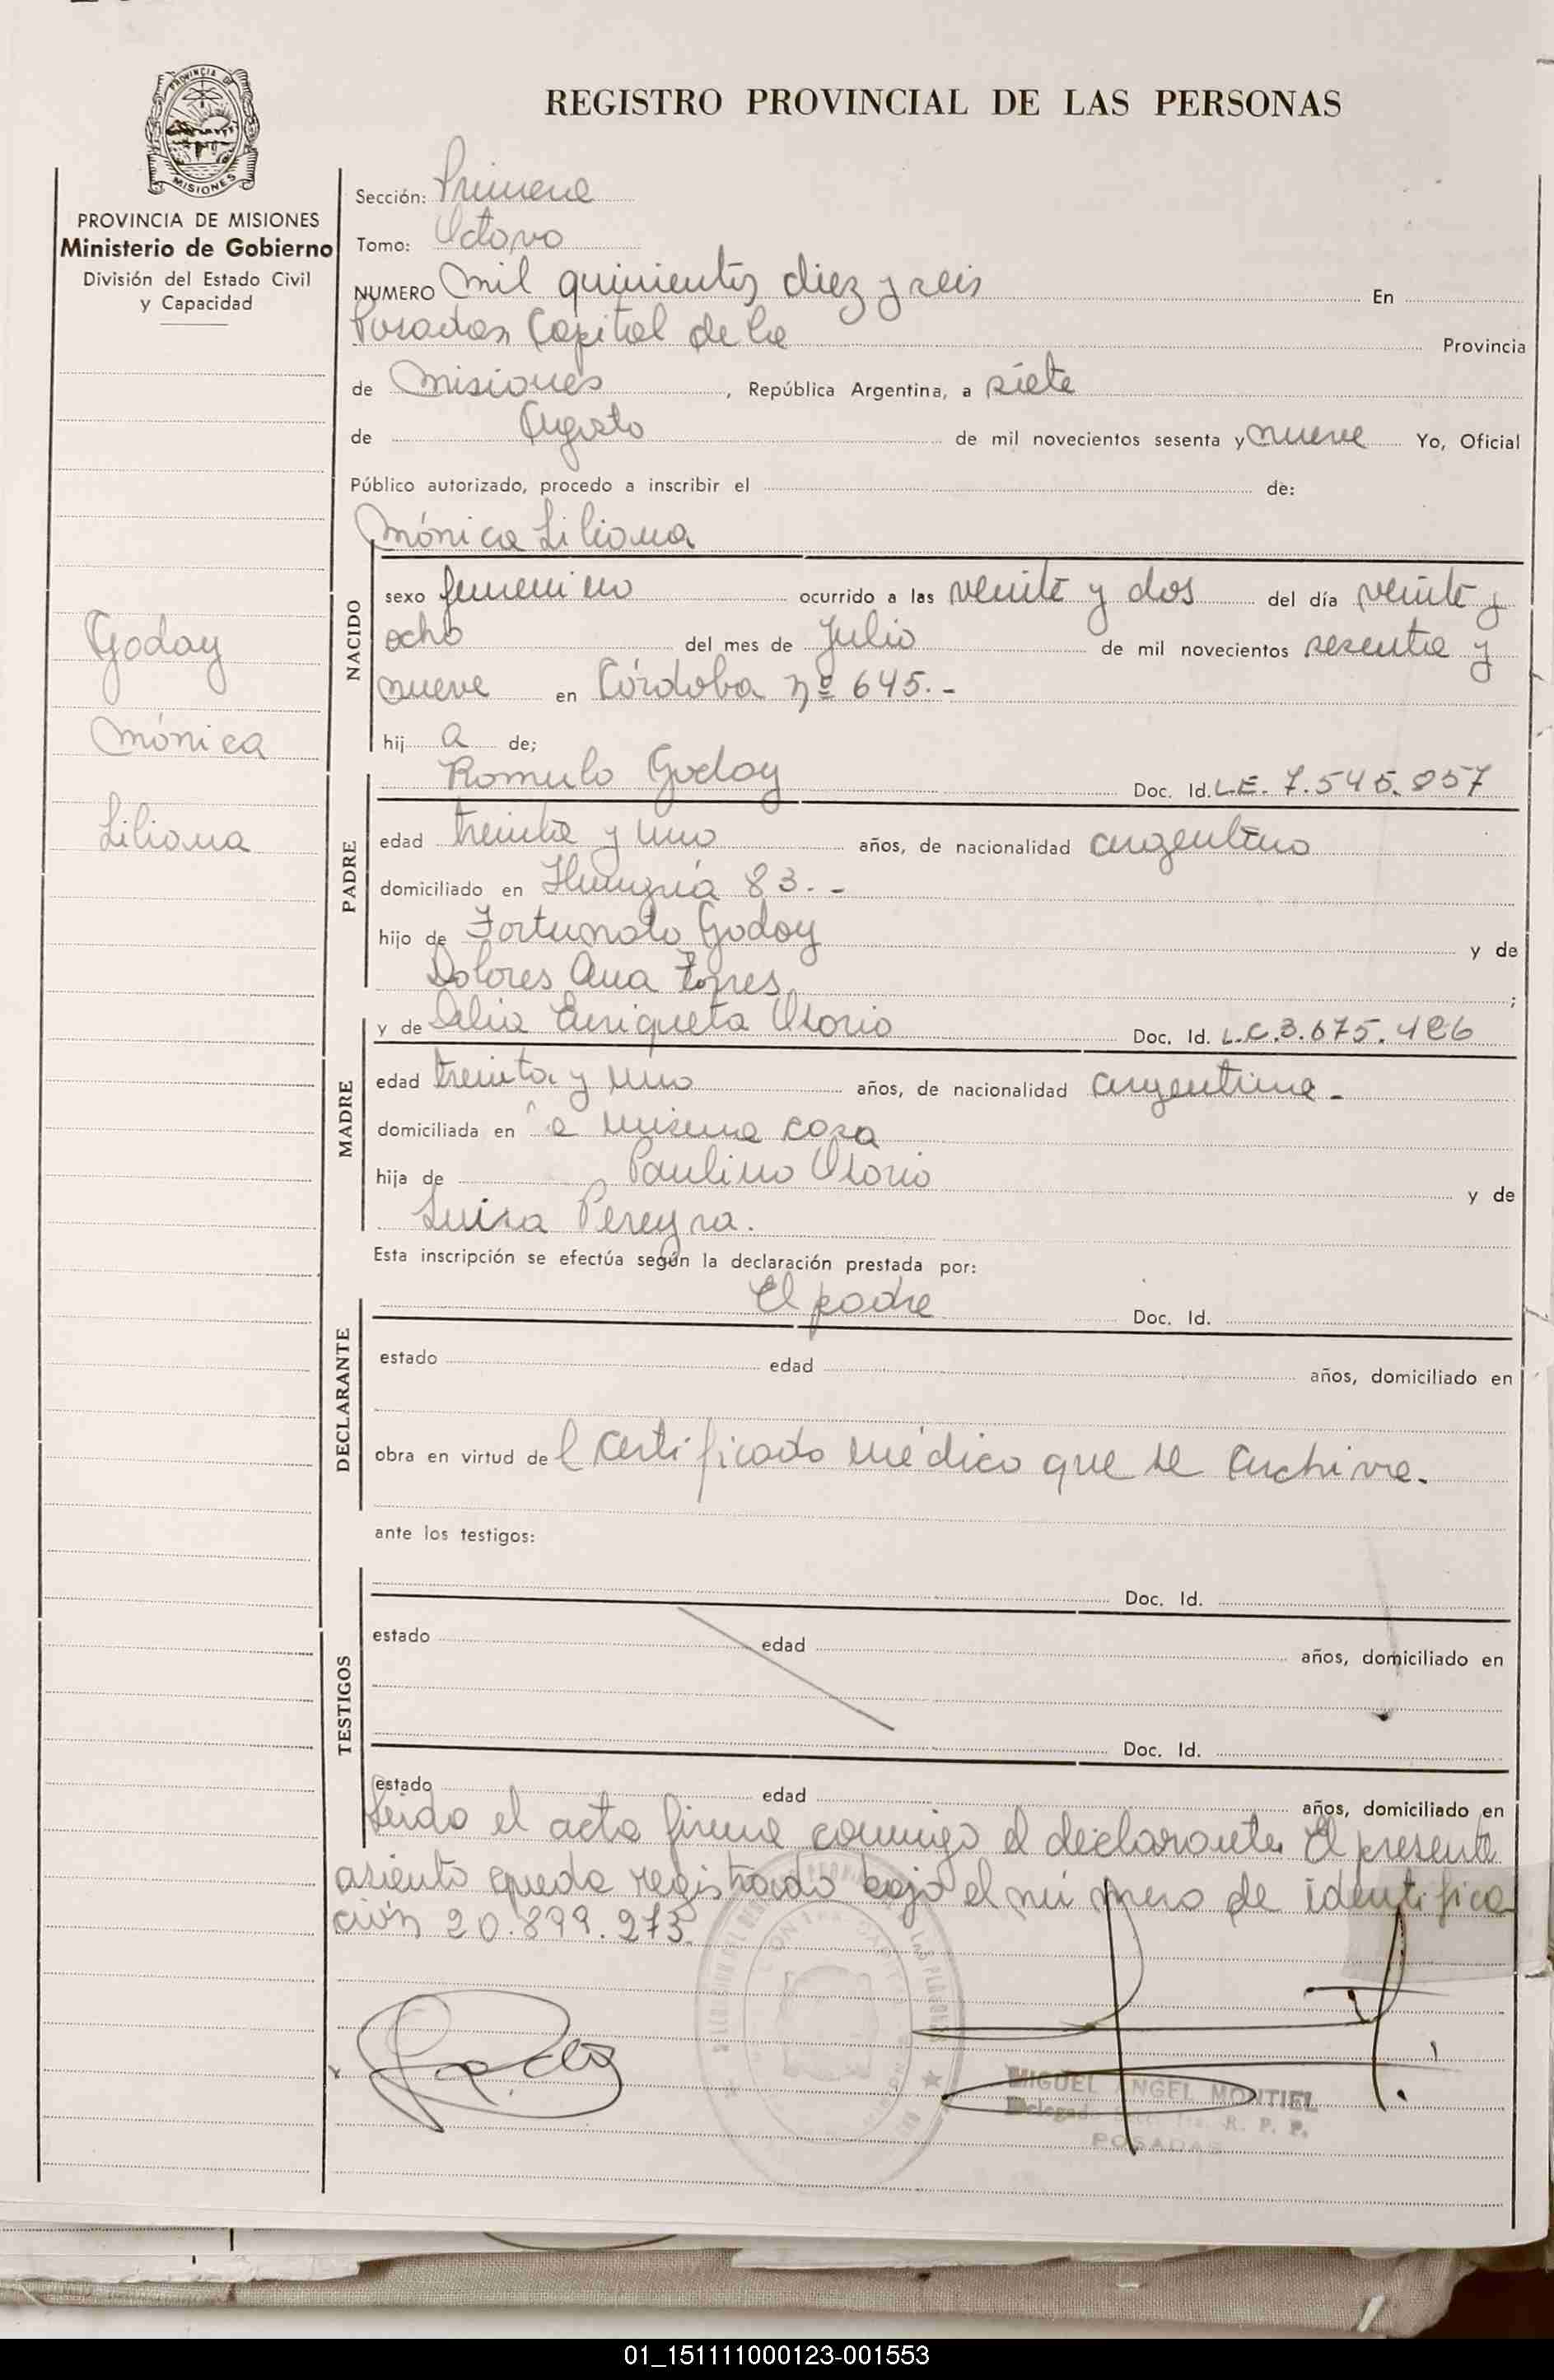 REGISTRO PROVINCIAL DE LAS PERSONAS
PROVINCIA DE MISIONES
MISIONES
PROVINCIA DE MISIONES
Ministerio de Gobierno
División del Estado Civil
y Capacidad
Sección: Primera
Tomo: Octavo
NUMERO Mil quinientos diez y seis En
Posadas Capital de la Provincia
de Misiones, República Argentina, a siete
de Agosto de mil novecientos sesenta y nueve Yo, Oficial
Público autorizado, procedo a inscribir el de:
Mónica Liliana
Godoy
Mónica
Liliana
NACIDO
sexo femenino ocurrido a las veinte y dos del día veinte y
ocho del mes de Julio de mil novecientos sesenta y
nueve en Córdoba nº 645.-
hij a de;
PADRE
Romulo Godoy Doc. Id. L.E. 7.545.857
edad treinta y uno años, de nacionalidad argentino
domiciliado en Hungría 83.-
hijo de Fortunato Godoy y de
Dolores Ana ;
MADRE
y de Delia Enriqueta Osorio Doc. Id. L.C. 3.675.486
edad treinta y uno años, de nacionalidad argentina -
domiciliada en la misma casa
hija de Paulino Osorio y de
Luisa Pereyra.
Esta inscripción se efectúa según la declaración prestada por:
DECLARANTE
El padre Doc. Id.
estado edad años, domiciliado en
obra en virtud del certificado médico que se archiva.
ante los testigos:
TESTIGOS
Doc. Id.
estado edad años, domiciliado en
Doc. Id.
estado edad años, domiciliado en
Leido el acta firma conmigo el declarante. El presente
asiento queda registrado bajo el número de identifica
ción 20.899.273.
MIGUEL ANGEL MONTIEL
R. P. P.
POSADAS
01_151111000123-001553